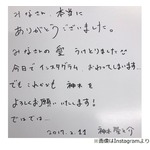 みなさん、本当に
ありがとうございました。
みなさんの愛 うけとりました
今日でインスタグラム おわってしまいます。
でも これからも 神木を
よろしくお願いいたします!
ではでは…
2017.6.11 神木隆之介
※画像はInstagramより